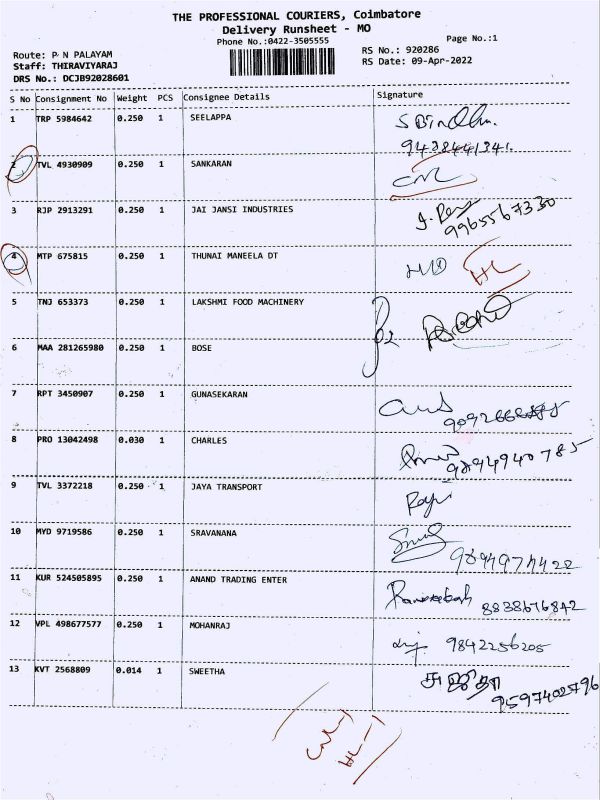 THE PROFESSIONAL COURIERS, Coimbatore
Delivery Runsheet - MO
Phone No.:0422-3505555
Page No.:1
Route: P N PALAYAM
Staff: THIRAVIYARAJ
DRS No.: DCJB92028601
RS No.: 920286
RS Date: 09-Apr-2022
S No Consignment No Weight PCS Consignee Details Signature
1 TRP 5984642 0.250 1 SEELAPPA
2 TVL 4930909 0.250 1 SANKARAN
3 RJP 2913291 0.250 1 JAI JANSI INDUSTRIES 9965567330
4 MTP 675815 0.250 1 THUNAI MANEELA DT HL
5 TNJ 653373 0.250 1 LAKSHMI FOOD MACHINERY
6 MAA 281265980 0.250 1 BOSE
7 RPT 3450907 0.250 1 GUNASEKARAN
8 PRO 13042498 0.030 1 CHARLES 9894940785
9 TVL 3372218 0.250 1 JAYA TRANSPORT
10 MYD 9719586 0.250 1 SRAVANANA 9894974422
11 KUR 524505895 0.250 1 ANAND TRADING ENTER 8838676842
12 VPL 498677577 0.250 1 MOHANRAJ 9842256205
13 KVT 2568809 0.014 1 SWEETHA சுஜிதா 9597402796
HL-1